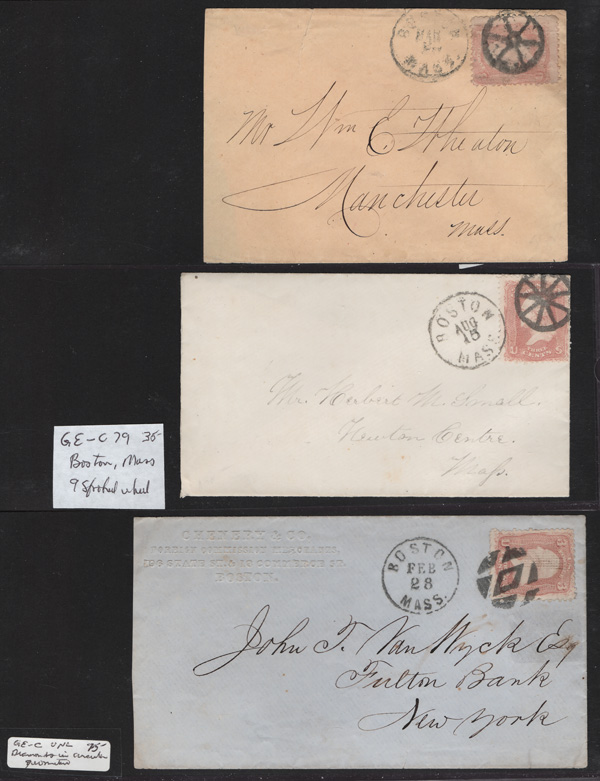 BOSTON
MAR
MASS.
Mr Wm E. Wheaton
Manchester
Mass.
BOSTON
AUG
15
MASS.
THREE
CENTS
Mr. Herbert M. Small.
Newton Centre.
Mass.
GE-C 79 35-
Boston, Mass
9 Spoked wheel
CHENERY & CO.
FOREIGN COMMISSION MERCHANTS,
STATE ST. & 10 COMMERCE ST.
BOSTON.
BOSTON
FEB
28
MASS.
John T. Van Wyck Esq
Fulton Bank
New York
GE-C UNL 75-
in circular